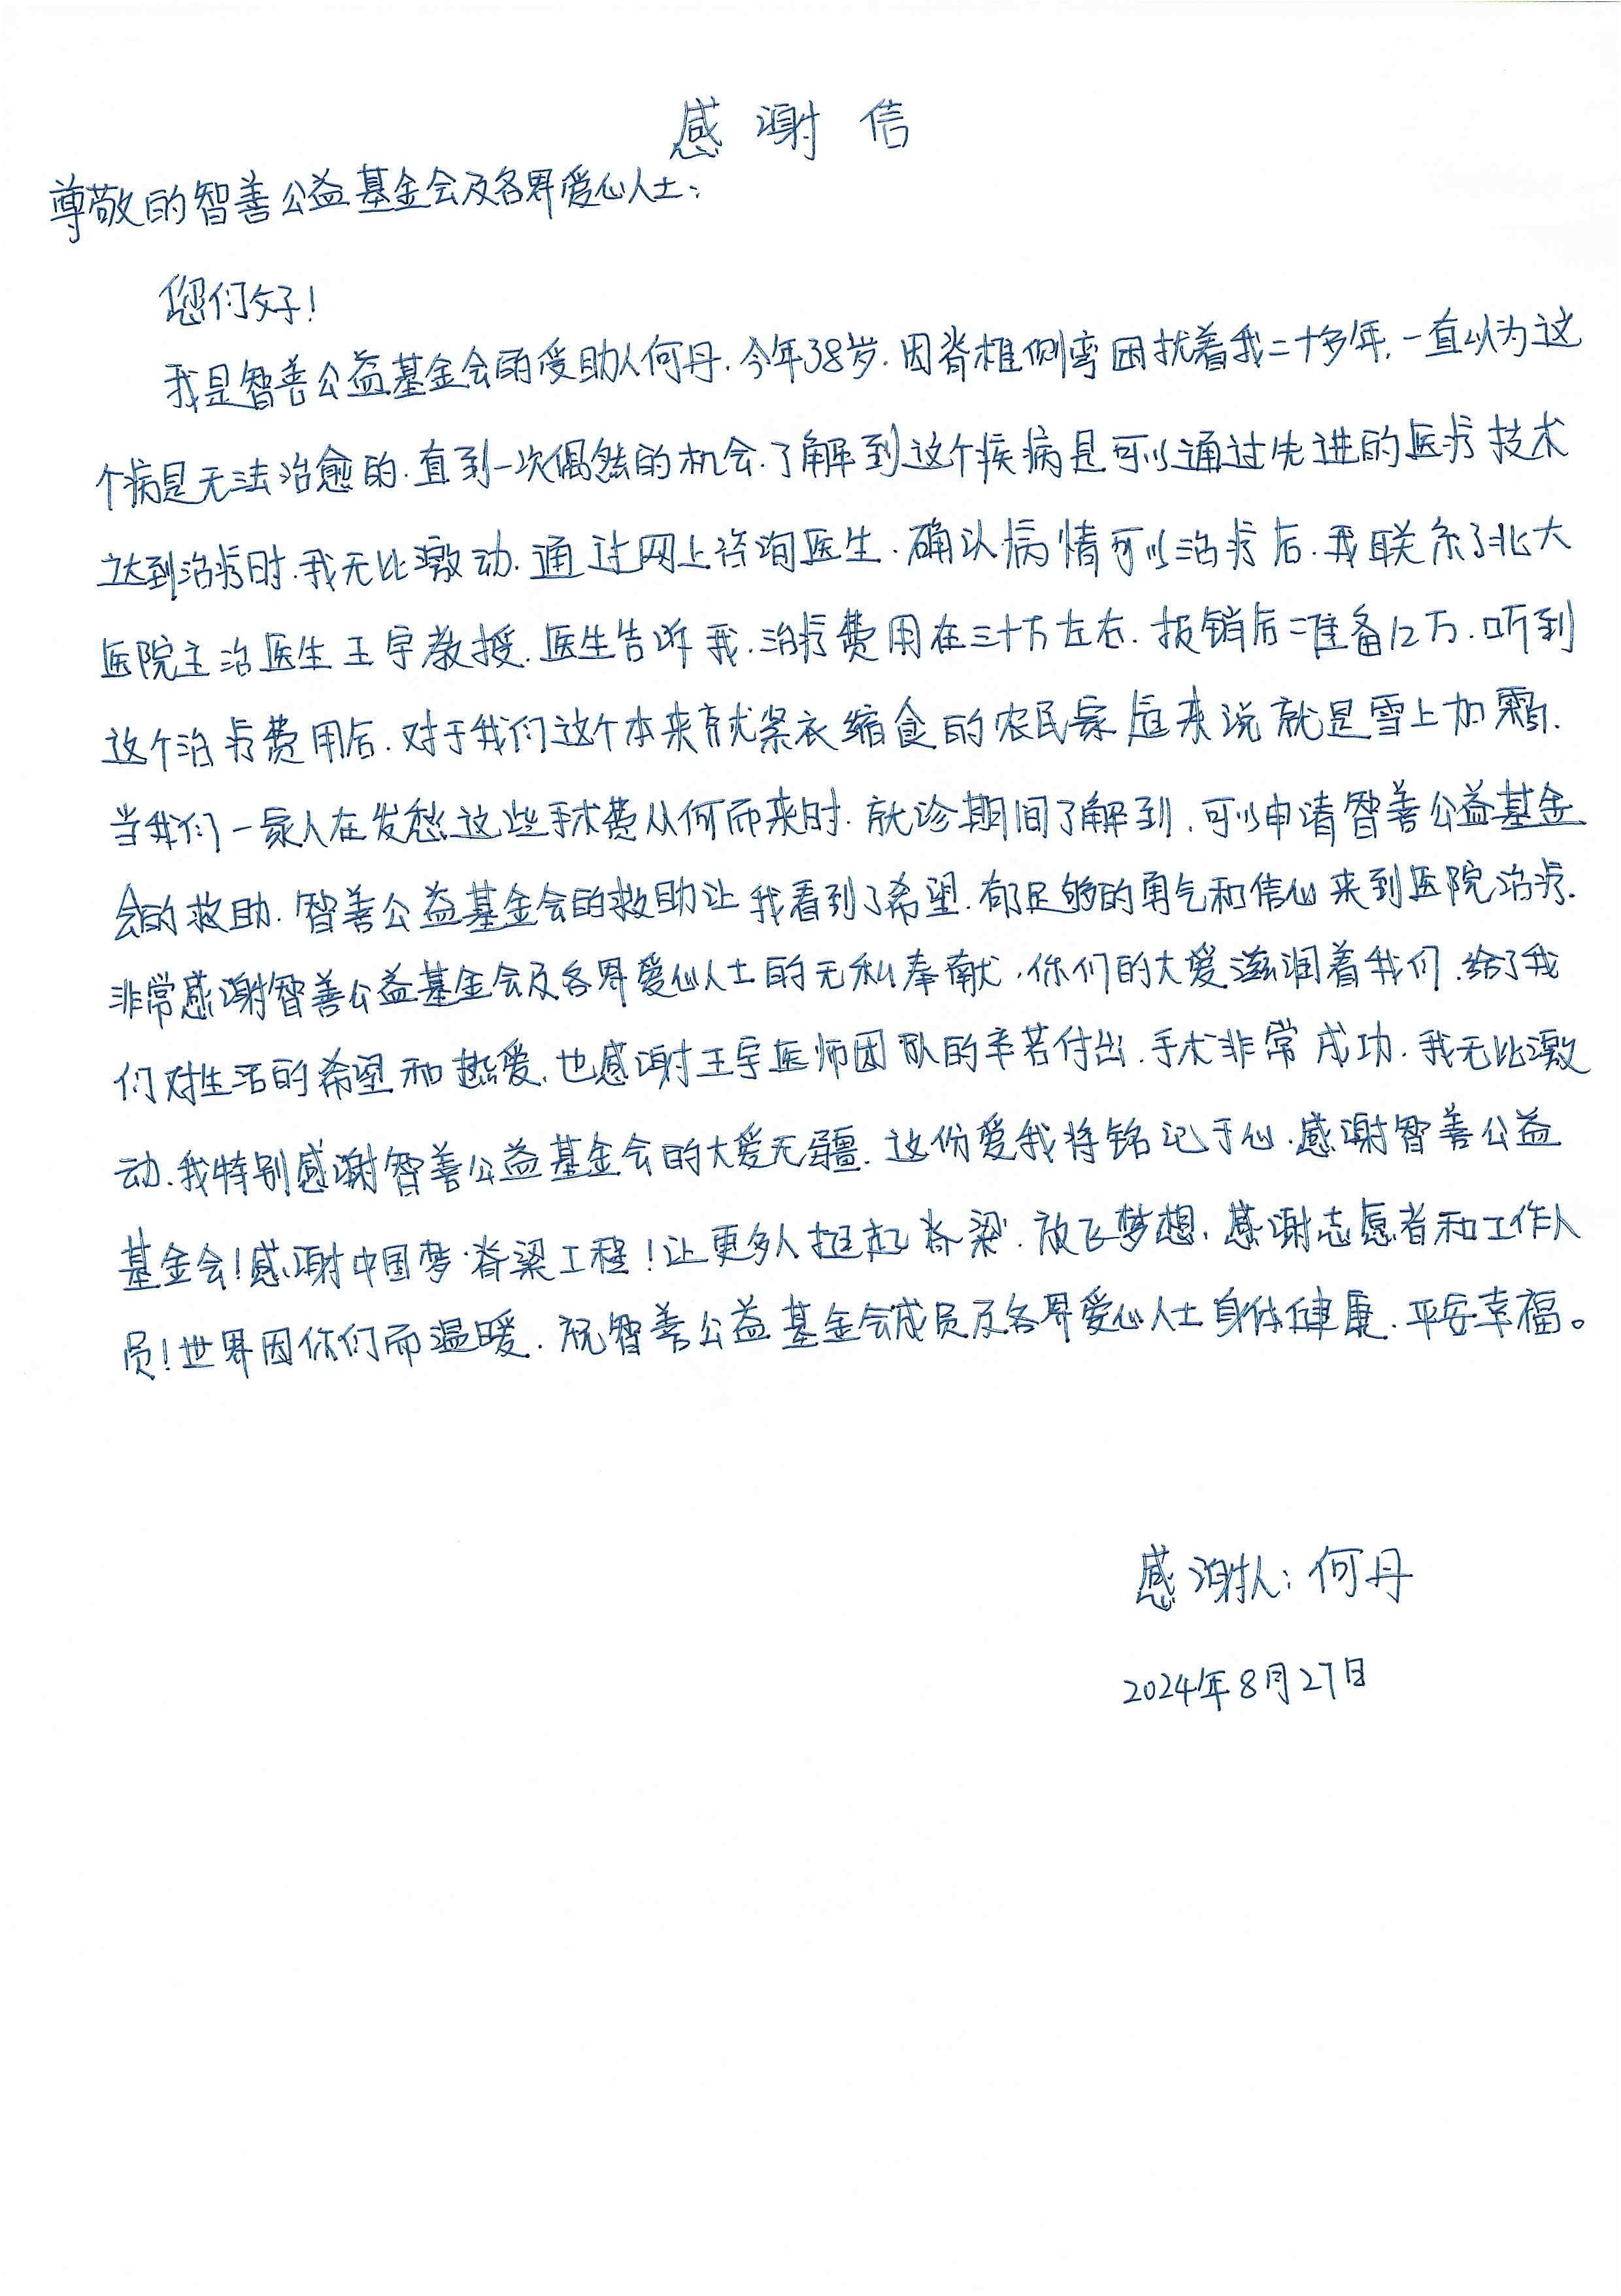 感谢信
尊敬的智善公益基金会及各界爱心人士：
您们好！
我是智善公益基金会的受助人何丹.今年38岁.因脊椎侧弯困扰着我二十多年.一直以为这
个病是无法治愈的.直到一次偶然的机会.了解到这个疾病是可以通过先进的医疗技术
达到治疗时.我无比激动.通过网上咨询医生.确认病情可以治疗后.我联系了北大
医院主治医生王宇教授.医生告诉我.治疗费用在三十万左右.报销后准备12万.听到
这个治疗费用后.对于我们这个本来就紧衣缩食的农民家庭来说就是雪上加霜.
当我们一家人在发愁这些手术费从何而来时.就诊期间了解到.可以申请智善公益基金
会的救助.智善公益基金会的救助让我看到了希望.有足够的勇气和信心来到医院治疗.
非常感谢智善公益基金会及各界爱心人士的无私奉献.你们的大爱滋润着我们.给了我
们对生活的希望和热爱.也感谢王宇医师团队的辛苦付出.手术非常成功.我无比激
动.我特别感谢智善公益基金会的大爱无疆.这份爱我将铭记于心.感谢智善公益
基金会！感谢中国梦·脊梁工程！让更多人挺起脊梁.放飞梦想.感谢志愿者和工作人
员！世界因你们而温暖.祝智善公益基金会成员及各界爱心人士身体健康.平安幸福。
感谢人：何丹
2024年8月27日